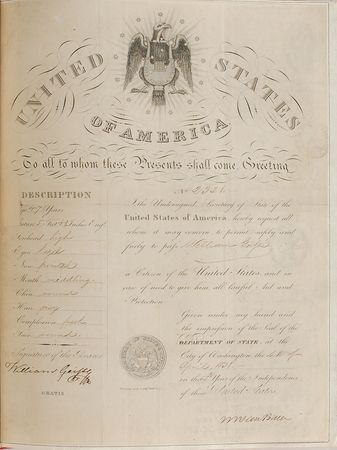 UNITED STATES
OF AMERICA
To all to whom these Presents shall come Greeting
No 2321
DESCRIPTION
Age 47 Years
Stature 5 Feet Inches Eng.
Forehead high
Eyes
Nose pointed
Mouth middling
Chin round
Hair grey
Complexion
Face round
Signature of the Bearer
William
GRATIS
I the Undersigned, Secretary of State of the
United States of America, hereby request all
whom it may concern to permit safely and
freely to pass William
a Citizen of the United States, and in
case of need to give him all lawful Aid and
Protection
Given under my hand and
the impression of the Seal of the
DEPARTMENT OF STATE, at the
City of Washington the
April 1831
in the Year of the Independence
of these United States.
M Van Buren